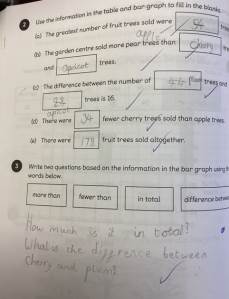 2 Use the information in the table and bar graph to fill in the blanks
(a) The greatest number of fruit trees sold were
apple
(b) The garden centre sold more pear trees than cherry
and apricot trees.
(c) The difference between the number of plum trees and
trees is 16.
apricot
(d) There were 34 fewer cherry trees sold than apple trees.
(e) There were 178 fruit trees sold altogether.
3 Write two questions based on the information in the bar graph using
words below.
more than fewer than in total difference between
How much is it in total?
What is the diffrence between
Cherry and plum?